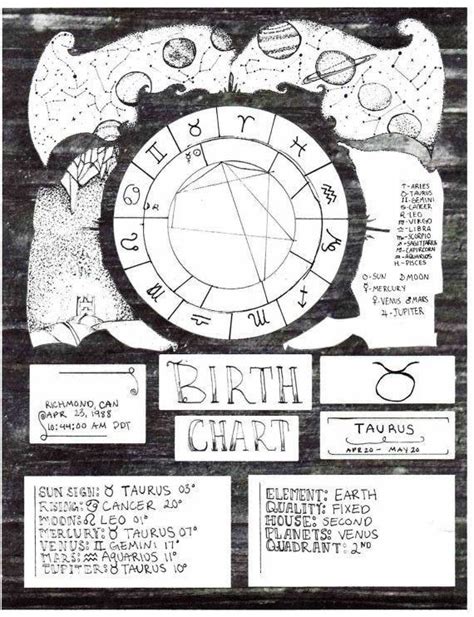 ♈-ARIES
♉-TAURUS
♊-GEMINI
♋-CANCER
♌-LEO
♍-VIRGO
♎-LIBRA
♏-SCORPIO
♐-SAGITTARIUS
♑-CAPRICORN
♒-AQUARIUS
♓-PISCES
☉-SUN ☽MOON
☿-MERCURY
♀-VENUS ♂MARS
♃-JUPITER
BIRTH
CHART
RICHMOND, CAN
@APR 23, 1988
@10:44:00 AM PDT
♉
TAURUS
APR 20 - MAY 20
SUN SIGN: ♉ TAURUS 03°
RISING: ♋ CANCER 20°
MOON: ♌ LEO 01°
MERCURY: ♉ TAURUS 07°
VENUS: ♊ GEMINI 17°
MARS: ♒ AQUARIUS 11°
JUPITER: ♉ TAURUS 10°
ELEMENT: EARTH
QUALITY: FIXED
HOUSE: SECOND
PLANETS: VENUS
QUADRANT: 2ND